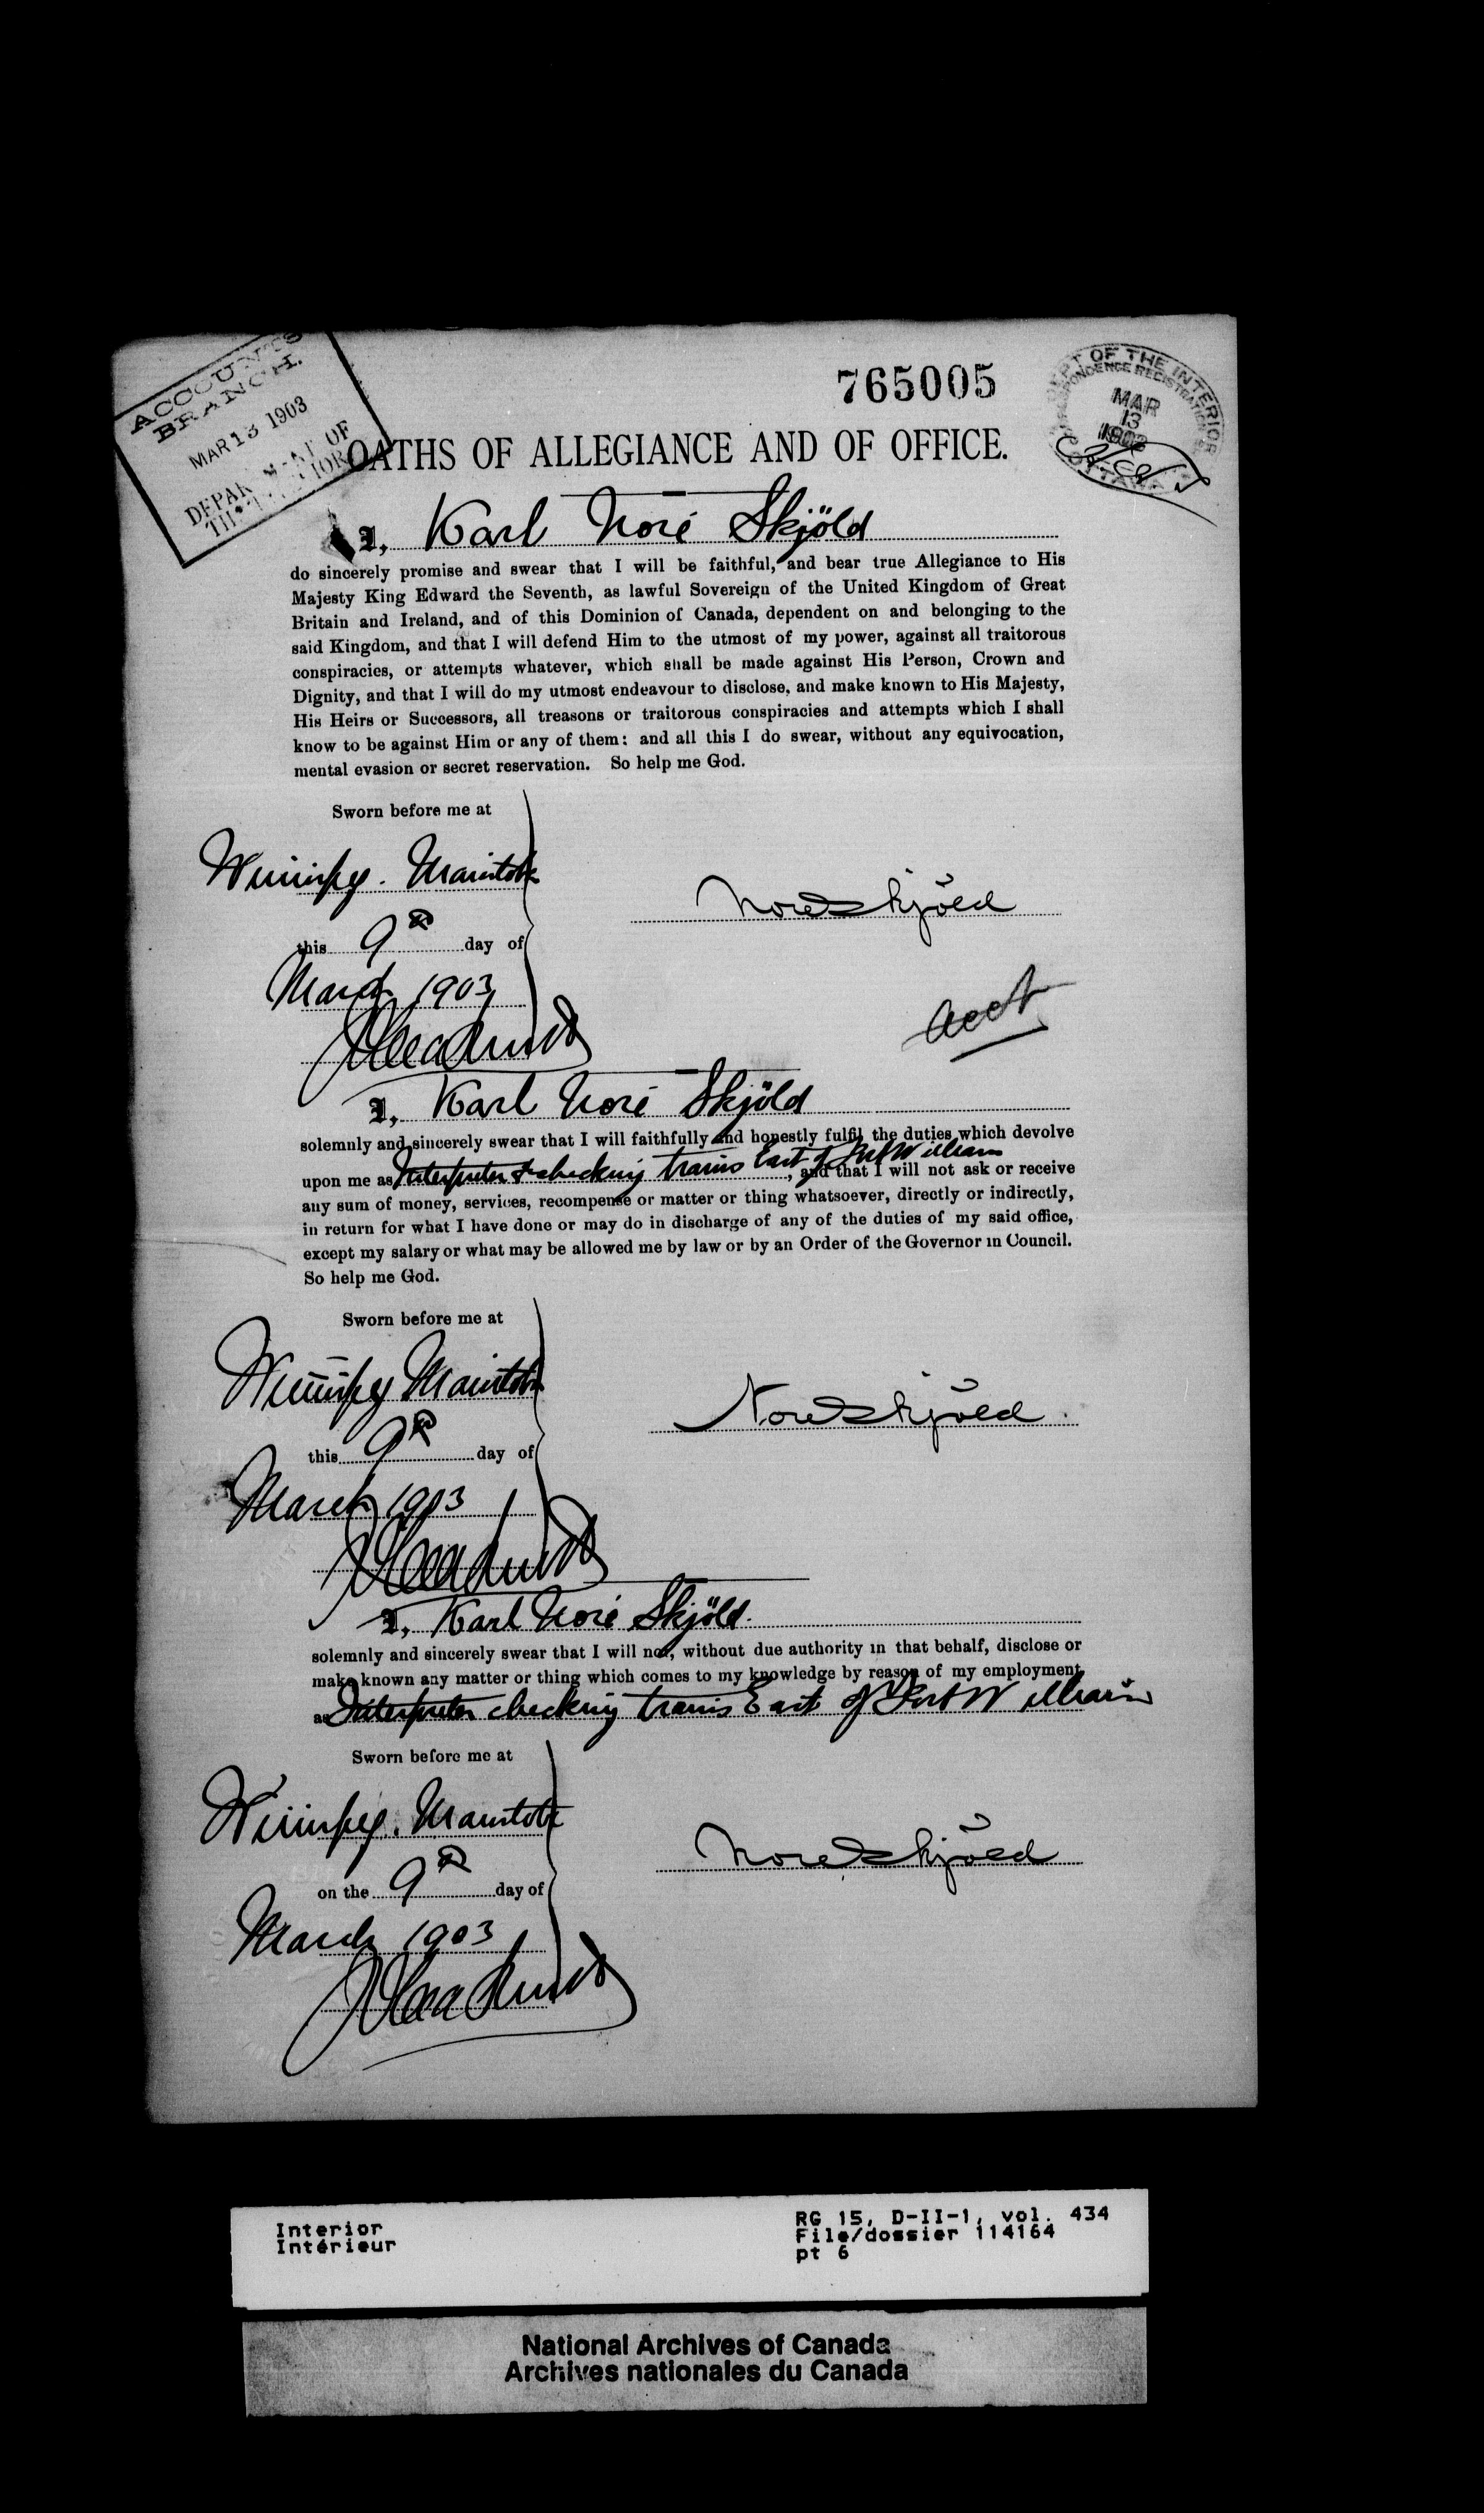 ACCOUNTS
BRANCH.
MAR 13 1903
DEPARTMENT OF
THE INTERIOR
765005
DEPT OF THE INTERIOR
CORRESPONDENCE REGISTRATION
MAR
13
OTTAWA
OATHS OF ALLEGIANCE AND OF OFFICE.
I, Karl Noré Skjöld
do sincerely promise and swear that I will be faithful, and bear true Allegiance to His
Majesty King Edward the Seventh, as lawful Sovereign of the United Kingdom of Great
Britain and Ireland, and of this Dominion of Canada, dependent on and belonging to the
said Kingdom, and that I will defend Him to the utmost of my power, against all traitorous
conspiracies, or attempts whatever, which shall be made against His Person, Crown and
Dignity, and that I will do my utmost endeavour to disclose, and make known to His Majesty,
His Heirs or Successors, all treasons or traitorous conspiracies and attempts which I shall
know to be against Him or any of them: and all this I do swear, without any equivocation,
mental evasion or secret reservation. So help me God.
Sworn before me at
Winnipeg. Manitoba
Nore Skjöld
this 9th day of
March 1903
acct
I, Karl Noré Skjöld
solemnly and sincerely swear that I will faithfully and honestly fulfil the duties which devolve
upon me as Interpreter & checking trains East of Fort William, and that I will not ask or receive
any sum of money, services, recompense or matter or thing whatsoever, directly or indirectly,
in return for what I have done or may do in discharge of any of the duties of my said office,
except my salary or what may be allowed me by law or by an Order of the Governor in Council.
So help me God.
Sworn before me at
Winnipeg Manitoba
Nore Skjöld.
this 9th day of
March 1903
I, Karl Noré Skjöld.
solemnly and sincerely swear that I will not, without due authority in that behalf, disclose or
make known any matter or thing which comes to my knowledge by reason of my employment
as Interpreter checking trains East of Fort William
Sworn before me at
Winnipeg. Manitoba
Nore Skjöld
on the 9th day of
March 1903
Interior
Intérieur
RG 15, D-II-1, vol. 434
File/dossier 114164
pt 6
National Archives of Canada
Archives nationales du Canada